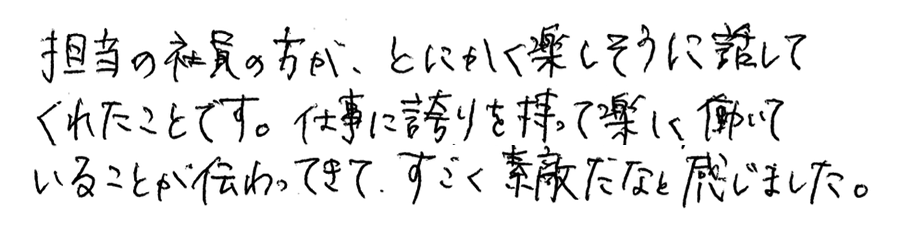 担当の社員の方が、とにかく楽しそうに話して
くれたことです。仕事に誇りを持って楽しく働いて
いることが伝わってきて、すごく素敵だなと感じました。